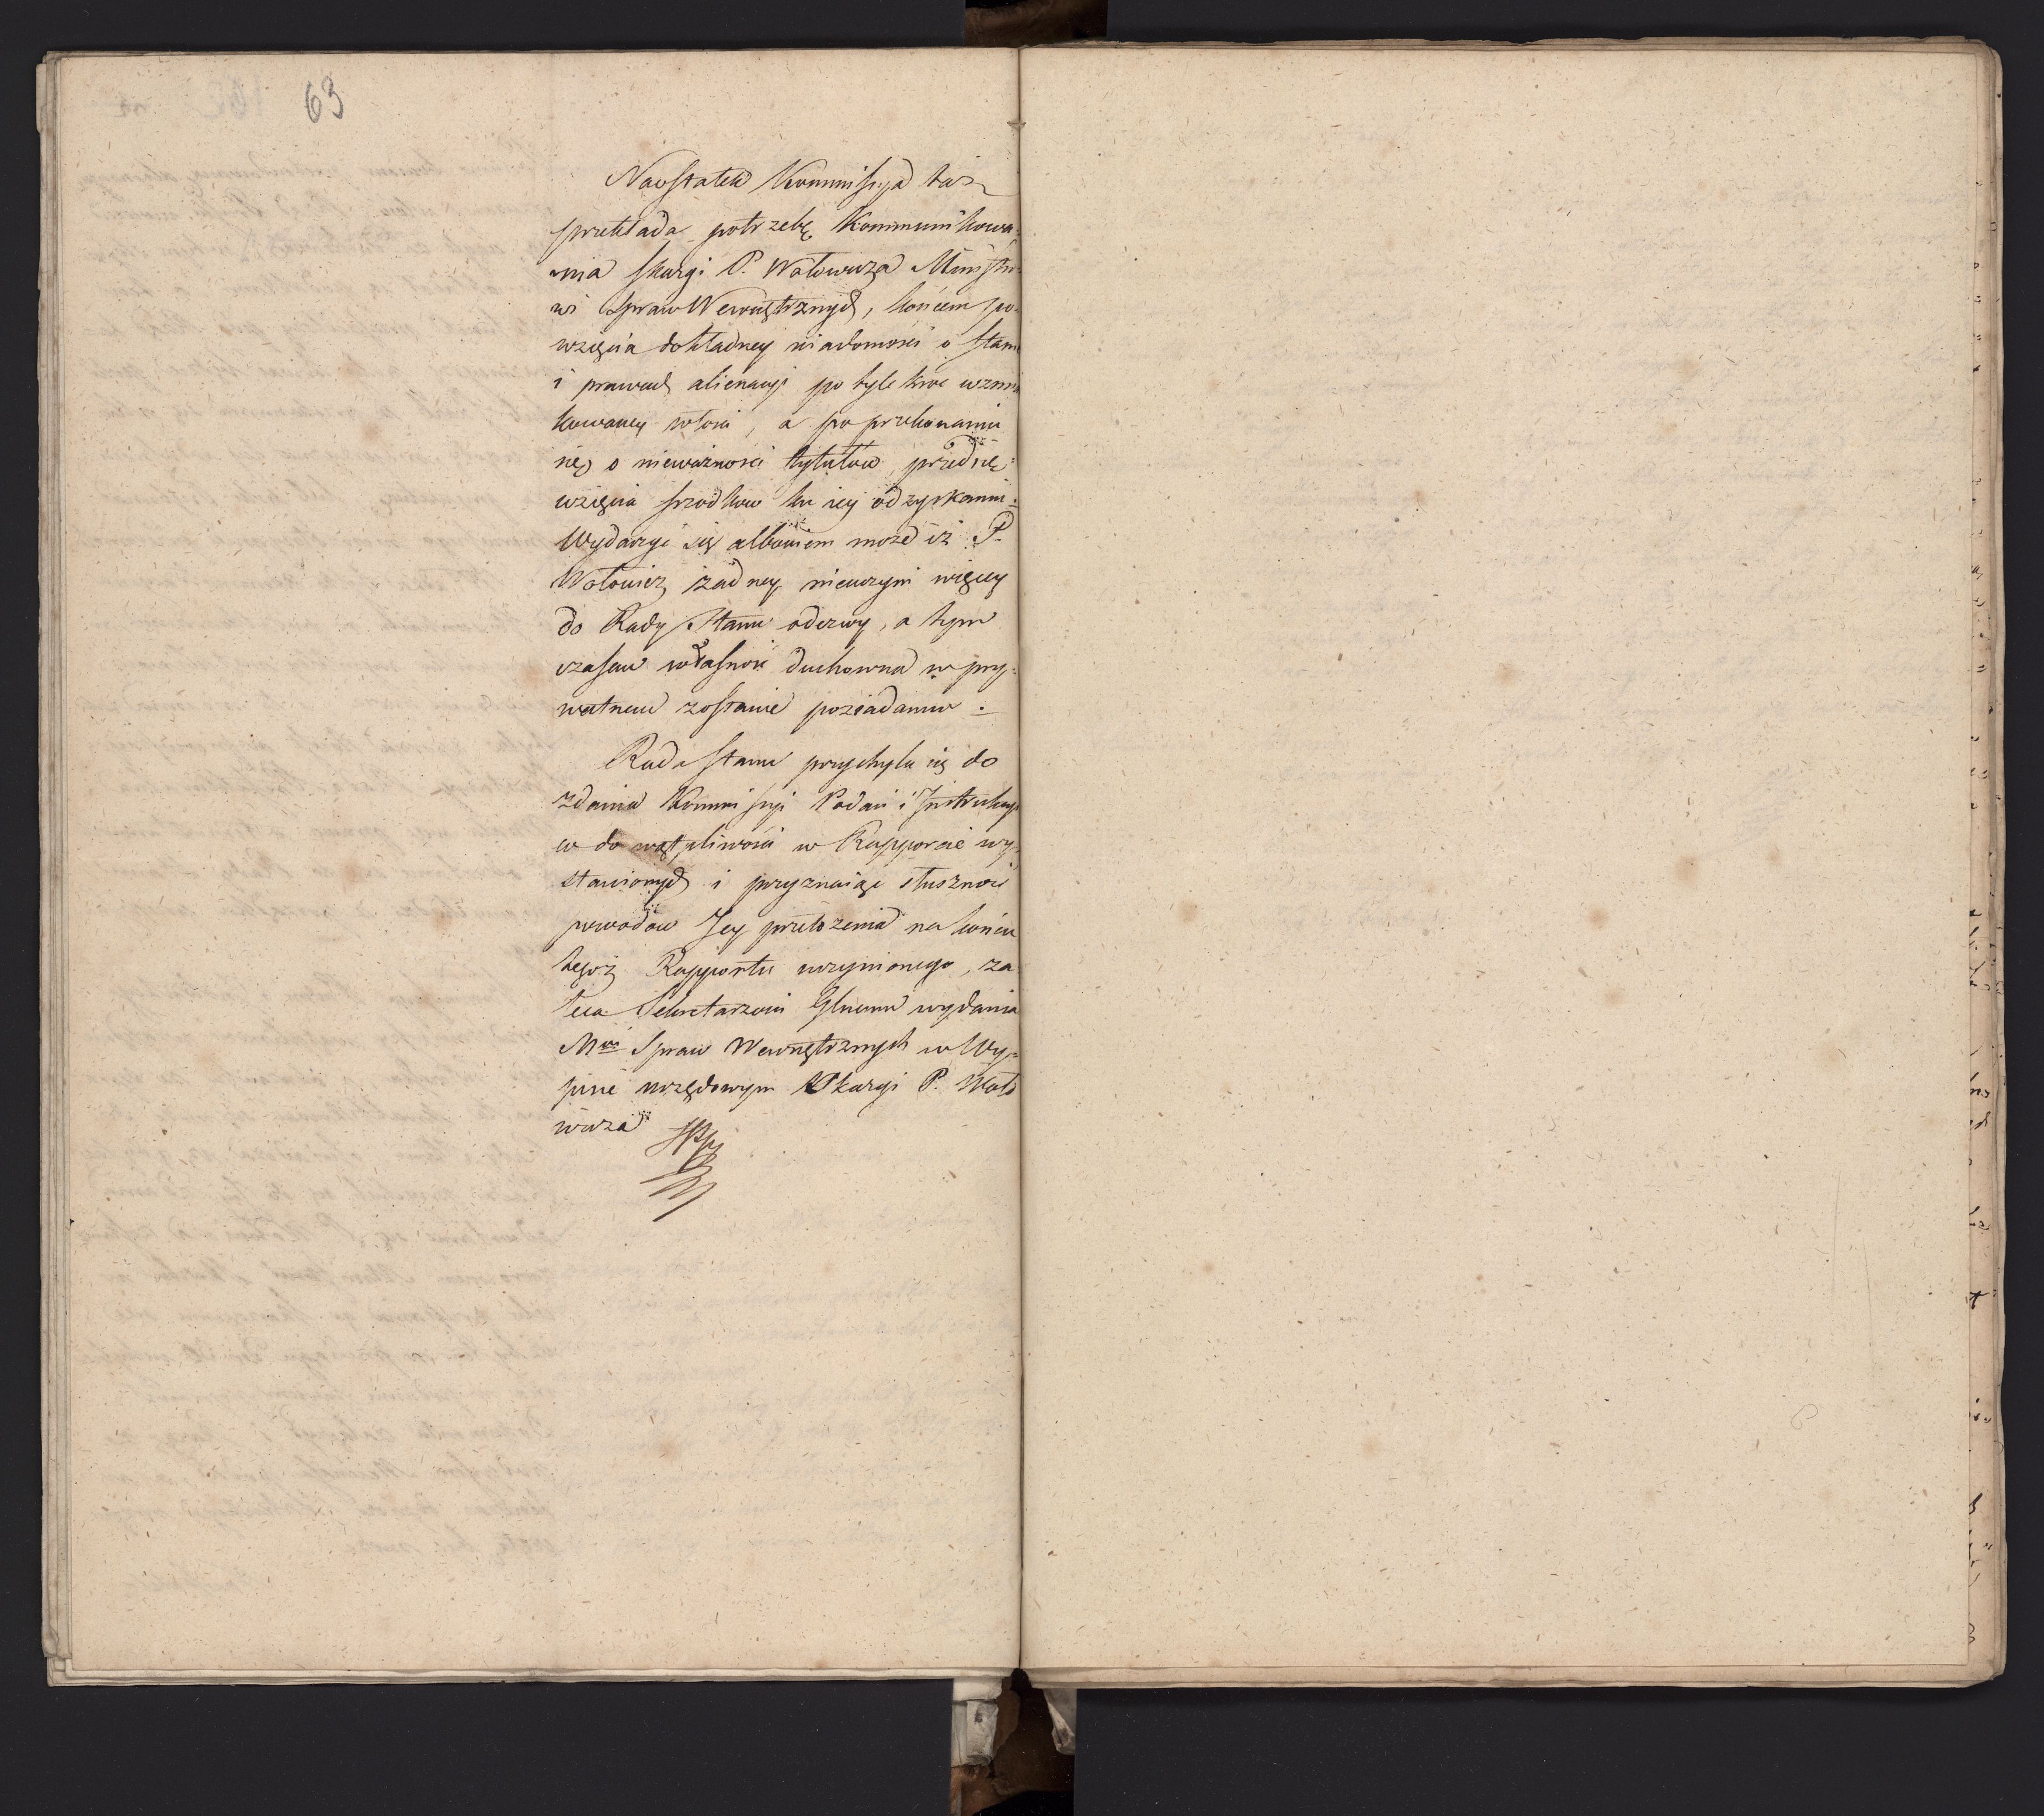 63
Naostatek Kommissyja taż
przekłada potrzebę Kommunikowa-
nia skargi P. Wołowicza Ministro-
wi Spraw Wewnętrznych, końcem po-
wzięcia dokładney wiadomości o stanie
i prawach alienacyi po tyle kroć wzmian
kowaney włości, a po przekonaniu
się o nieważności tytułów, przedsię-
wzięcia srzodkow ku iey odzyskaniu.
Wydarzyć się albowiem może iż P.
Wołowicz żadney nieuczyni więcey
do Rady Stanu odezwy, a tym
czasem własność duchowna w pry-
watnem zostanie posiadaniu.
Rada Stanu przychyla się do
zdania Kommissyi Podań i Instrukcyi
co do wątpliwości w Rapporcie wy-
stawionych i przyznaiąc słuszność
powodów Jey przełożenia na końcu
tegoż Rapportu uczynionego, za
leca Sekretarzowi Głnemu wydania
Mwi Spraw Wewnętrznych w Wy-
pisie urzędowym Skargi P. Woło
wicza